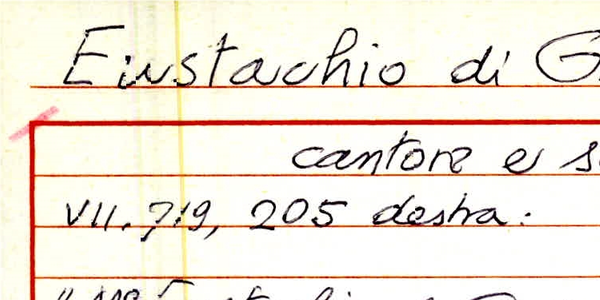 Eustachio di G
cantore e s
VII. 719, 205 destra: